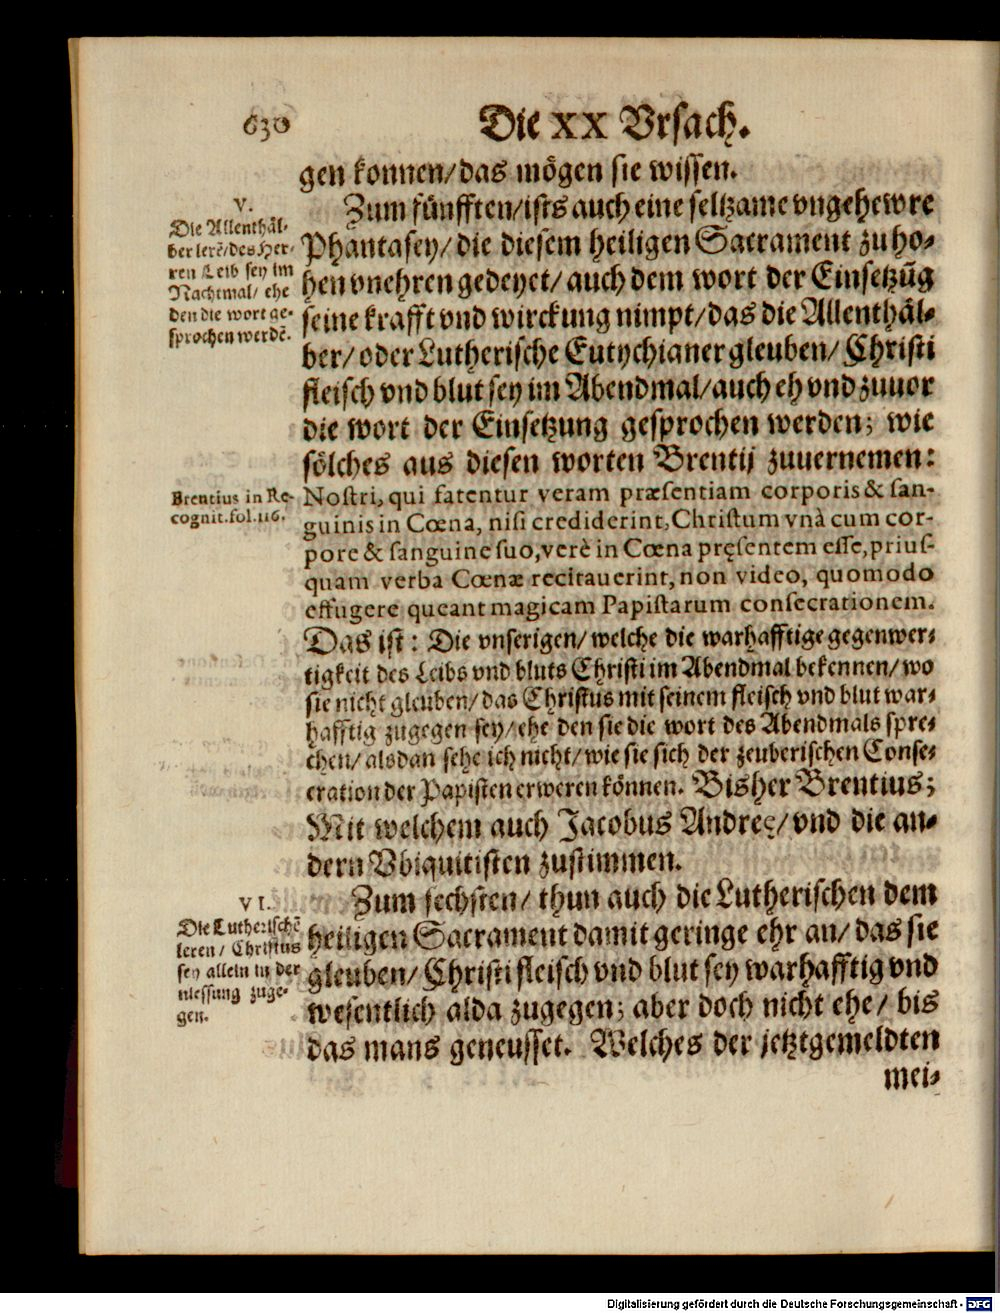 630
Die XX Vrsach.
gen konnen/das mögen sie wissen.
V.
Die Allenthäl-
ber lerẽ/des Her-
ren Leib sey im
Nachtmal/ ehe
den die wort ge-
sprochen werdẽ.
Zum fünfften/ists auch eine seltzame vngehewre
Phantasey/ die diesem heiligen Sacrament zu ho-
hen vnehren gedeyet/ auch dem wort der Einsetzũg
seine krafft vnd wirckung nimpt/das die Allenthäl-
ber/ oder Lutherische Eutychianer gleuben/ Christi
fleisch vnd blut sey im Abendmal/auch eh vnd zuuor
die wort der Einsetzung gesprochen werden; wie
sölches aus diesen worten Brentij zuuernemen:
Brentius in Re-
cognit.fol.116.
Nostri, qui fatentur veram præsentiam corporis & san-
guinis in Cœna, nisi crediderint, Christum vnà cum cor-
pore & sanguine suo, verè in Cœna pręsentem esse, prius-
quam verba Cœnæ recitauerint, non video, quomodo
effugere queant magicam Papistarum consecrationem.
Das ist: Die vnserigen/ welche die warhafftige gegenwer-
tigkeit des Leibs vnd bluts Christi im Abendmal bekennen/ wo
sie nicht gleuben/ das Christus mit seinem fleisch vnd blut war-
hafftig zugegen sey/ ehe den sie die wort des Abendmals spre-
chen/ alsdan sehe ich nicht/ wie sie sich der zeuberischen Conse-
cration der Papisten erweren können. Bisher Brentius;
Mit welchem auch Jacobus Andreę/ vnd die an-
dern Vbiquitisten zustimmen.
VI.
Die Lutherischẽ
leren/ Christus
sey allein in der
niessung zuge-
gen.
Zum sechsten/ thun auch die Lutherischen dem
heiligen Sacrament damit geringe ehr an/ das sie
gleuben/ Christi fleisch vnd blut sey warhafftig vnd
wesentlich alda zugegen; aber doch nicht ehe/ bis
das mans geneusset. Welches der jetztgemeldten
mei-
Digitalisierung gefördert durch die Deutsche Forschungsgemeinschaft - DFG